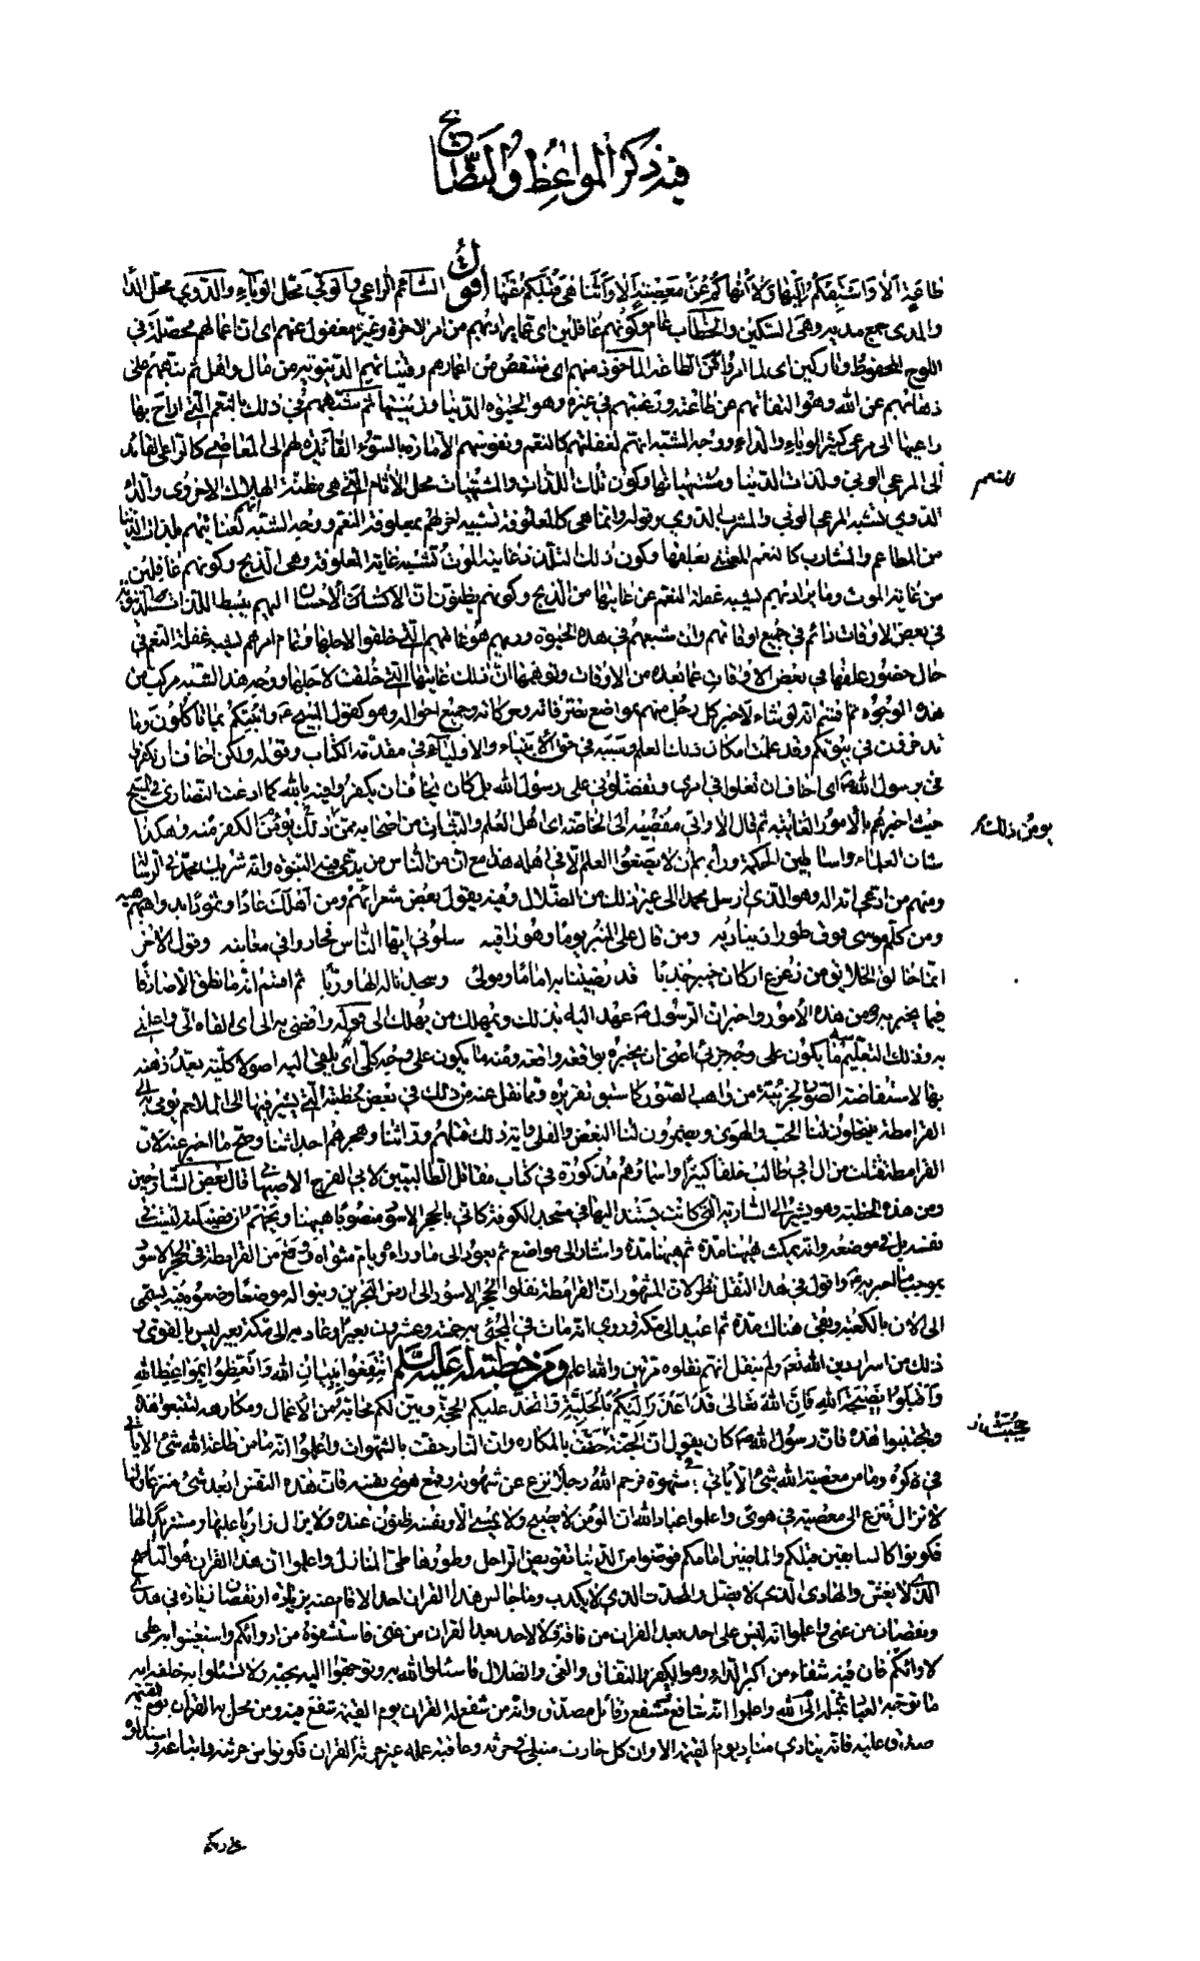 فيه ذكر المواعظ والنصائح
طاعة إلا واسبقكم إليها ولا أنهاكم عن معصية إلا وأتناهى قبلكم عنها أقول السائم الراعي والوبي محل الوباء والدوي محل الداء
والمدى جمع مدية وهي السكين والخطاب عام وكونهم غافلين اي عما يراد بهم من امر الاخرة وغير مغفول عنهم اي ان اعمالهم محصلة في
اللوح المحفوظ وتاركين اي لما امروا به من الطاعة المأخوذ منهم اي منتقص من اعمارهم وقيناتهم الدنيوية من مال واهل ثم نبههم على
ذهابهم عن الله وهو التفاتهم عن طاعته ورغبتهم في غيره وهو الحيوة الدنيا وزينتها ثم شبههم في ذلك بالنعم التي اراح بها
راعيها الى مرعى كثير الوباء والداء ووجه الشبه انهم لغفلتهم كالنعم ونفوسهم الامارة بالسوء القائدة لهم الى المعاصي كالراعي القائد
الى المرعى الوبي ولذات الدنيا ومشتهياتها وكون تلك اللذات والمشتهيات محل الآثام التي هي مظنة الهلاك الاخروي والداء
للنعم
الدوي تشبه المرعى الوبي والمشرب الدوي وقوله وانما هي كالمعلوفة تشبيه اخر لهم بمعلوفة النعم ووجه الشبه انهم لعنايتهم بلذات الدنيا
من المطاعم والمشارب كالنعم المعتنى بعلفها وكون ذلك التلذذ غايته الموت تشبه غاية المعلوفة وهي الذبح وكونهم غافلين
من غاية الموت وما يراد بهم يشبه غفلة النعم عن غايتها من الذبح وكونهم يظنون ان الاحسان اليهم ببسط اللذات الدنيوية
في بعض الاوقات دائم في جميع اوقاتهم وان شبعهم في هذه الحيوة وريهم هو غايتهم التي خلقوا لاجلها وتمام امرهم يشبه غفلة النعم في
حال حضور علفها في بعض الاوقات عما بعده من الاوقات وتوهمها ان ذلك غايتها التي خلقت لاجلها ووجه هذا الشبه مركب من
هذه الوجوه ثم اقسم انه لو شاء لاخبر كل رجل منهم بمواضع تصرفاته وحركاته وجميع احواله وهو كقول المسيح ع وانبئكم بما تأكلون وما
تدخرون في بيوتكم وقد علمت امكان ذلك العلم وسببه في حق الانبياء والاولياء في مقدمة الكتاب وقوله ولكن اخاف ان تكفروا
في برسول الله ص اي اخاف ان تغلوا في امري وتفضلوني على رسول الله بل كان يخاف ان يكفروا فيه بالله كما ادعت النصارى في المسيح
حيث اخبرهم بالامور الغائبة ثم قال الا واني مفضيه الى الخاصة اي اهل العلم والثبات من اصحابه ممن يؤمن الكفر منه وهكذا
يؤمن ذلك منه
شان العلماء واساطين الحكمة ورأيهم ان لا يضعوا العلم الا في اهله هذا مع ان من الناس من يدعي فيه النبوة وانه شريك محمد في الرسالة
ومنهم من ادعى انه اله وهو الذي ارسل محمدا الى غير ذلك من الضلال وفيه يقول بعض شعرائهم ومن اهلك عادا وثمودا بدواهيه
ومن كلم موسى فوق طور اذ يناديه ومن قال على المنبر يوما وهو راقيه سلوني ايها الناس فحاروا في معانيه وقول الآخر
انما خالق الخلائق من زعزع اركان خيبر جذبا قد رضينا به اماما ومولى وسجدنا له الها وربا ثم اقسم انه ما نطق الا صادقا
فيما يخبر به من هذه الامور واخبر ان الرسول ص عهد اليه بذلك وبمهلك من يهلك الى قوله وافضى به الي اي القاه الي واعلمني
به وذلك التعليم منه ما يكون على وجه جزئي اعني ان يخبره بواقعة واقعة ومنه ما يكون على وجه كلي اي يلقي اليه اصولا كلية يعد ذهنه
بها لاستفاضة الصور الجزئية من واهب الصور كما سبق تقريره ومما نقل عنه من ذلك في بعض خطبه التي يشير فيها الى الملاحم يومي به الى
القرامطة ينتحلون لنا الحب والهوى ويضمرون لنا البغض والقلى وآية ذلك قتلهم وراثنا وهجرهم احداثنا وصح ما اخبر عنه لان
القرامطة قتلت من ال ابي طالب خلقا كثيرا واسماؤهم مذكورة في كتاب مقاتل الطالبيين لابي الفرج الاصبهاني قال بعض الشارحين
ومن هذه الخطبة وهو يشير الى السارية التي كان يستند اليها في مسجد الكوفة كاني بالحجر الاسود منصوبا هيهنا ويحهم ان فضيلته ليست في
نفسه بل في موضعه وانه يمكث هيهنا مدة ثم هيهنا مدة واشار الى مواضع ثم يعود الى ماواه وبام مثواه ووقع من القرامطة في الحجر الاسود
بموجب ما اخبر به ع واقول في هذا النقل نظر لان المشهور ان القرامطة نقلوا الحجر الاسود الى ارض البحرين وبنوا له موضعا وضعوه فيه يسمى
الى الان بالكعبة وبقي هناك مدة ثم اعيد الى مكة وروي انه مات في المجيء به خمسة وعشرون بعيرا وعاد به الى مكة بعير ليس بالقوي و
ذلك من اسرار دين الله نعم ولم ينقل انهم نقلوه مرتين والله اعلم ومن خطبة له عليه السلام انتفعوا ببيان الله واتعظوا بمواعظ الله
واقبلوا نصيحة الله فان الله تعالى قد اعذر اليكم بالجلية واتخذ عليكم الحجة وبين لكم محابه من الاعمال ومكارهه لتتبعوا هذه
وتجتنبوا هذه فان رسول الله ص كان يقول ان الجنة حفت بالمكاره وان النار حفت بالشهوات واعلموا انه ما من طاعة الله شيء الا يأتي
في كره وما من معصية الله شيء الا يأتي في شهوة فرحم الله رجلا نزع عن شهوته وقمع هوى نفسه فان هذه النفس ابعد شيء منزعا وانها
لا تزال تنزع الى معصية في هوى واعلموا عباد الله ان المؤمن لا يصبح ولا يمسي الا ونفسه ظنون عنده ولا يزال زاريا عليها ومستزيدا لها
فكونوا كالسابقين قبلكم والماضين امامكم قوضوا من الدنيا تقويض الراحل وطووها طي المنازل واعلموا ان هذا القرآن هو الناصح
الذي لا يغش والهادي الذي لا يضل والمحدث الذي لا يكذب وما جالس هذا القران احد الا قام عنه بزيادة او نقصان زيادة في هدى
ونقصان من عمى واعلموا انه ليس على احد بعد القران من فاقة ولا لاحد بعد القران من غنى فاستشفوه من ادوائكم واستعينوا به على
لاوائكم فان فيه شفاء من اكبر الداء وهو الكفر والنفاق والغي والضلال فاسئلوا الله به وتوجهوا اليه بحبه ولا تسئلوا به خلقه انه
ما توجه العباد بمثله الى الله واعلموا انه شافع مشفع وقائل مصدق وانه من شفع له القران يوم القيمة شفع فيه ومن محل به القران يوم القيمة
صدق عليه فانه ينادي مناد يوم القيمة الا وان كل حارث مبتلى في حرثه وعاقبة عمله غير حرثة القران فكونوا من حرثته واتباعه واستدلوه
على ربكم